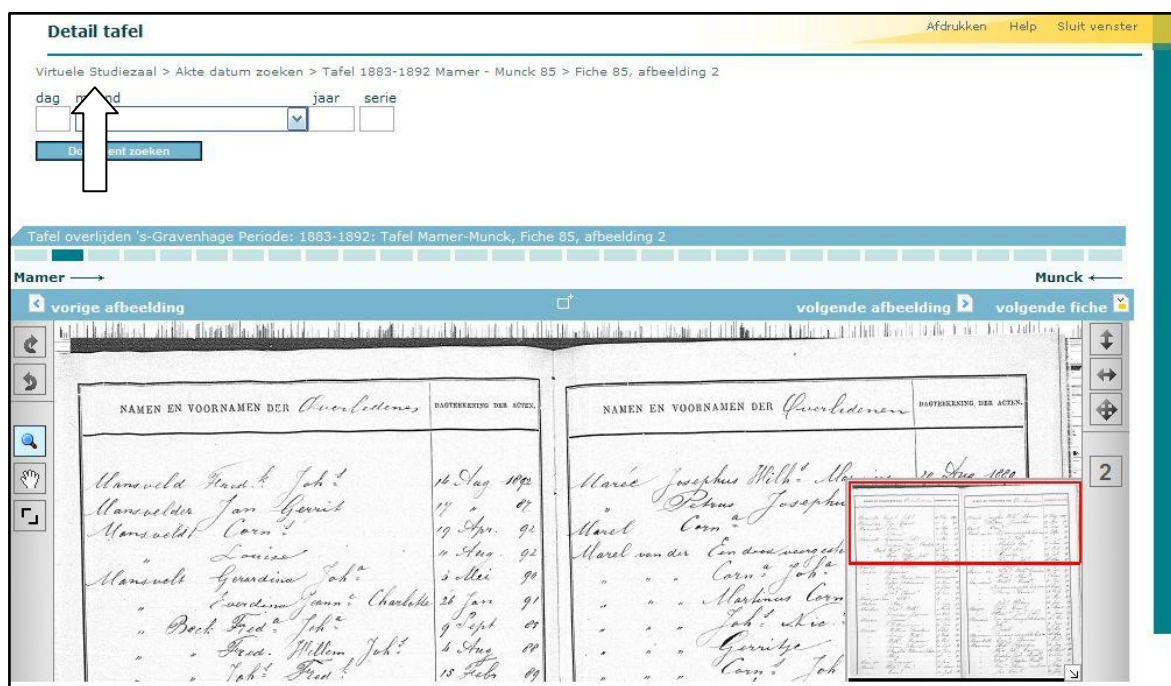 Detail tafel
Afdrukken Help Sluit venster
Virtuele Studiezaal > Akte datum zoeken > Tafel 1883-1892 Mamer - Munck 85 > Fiche 85, afbeelding 2
dag m nd jaar serie
Do ent zoeken
Tafel overlijden 's-Gravenhage Periode: 1883-1892: Tafel Mamer-Munck, Fiche 85, afbeelding 2
Mamer Munck
vorige afbeelding volgende afbeelding volgende fiche
NAMEN EN VOORNAMEN DER Overledenen DAGTEEKENING DER ACTEN.
Mansveld Fred.k Joh.s 14 Aug 1892
Mansvelder Jan Gerrit 17 " 87
Mansveldt Corn.s 19 Apr. 92
" Louise " Aug 92
Mansvelt Gerardina Joh.a 3 Mei 90
" Everdina Joann.a Charlotte 26 Jan 91
" Bock Fred.a Joh.a 9 Sept 85
" " Fred. Willem Joh.s 4 Aug 88
" " Joh.s Fred.k 15 Febr 89
NAMEN EN VOORNAMEN DER Overledenen DAGTEEKENING DER ACTEN.
Marée Josephus Wilh.s Aug 1889
" Petrus Josephu
Marel Corn.a
Marel van der Een dood aangest
" " " Corn.a Joh.a
" " " Martinus Corn
" " " Joh.s Nic.
" " " Gerritje
" " " Corn.s Joh
2